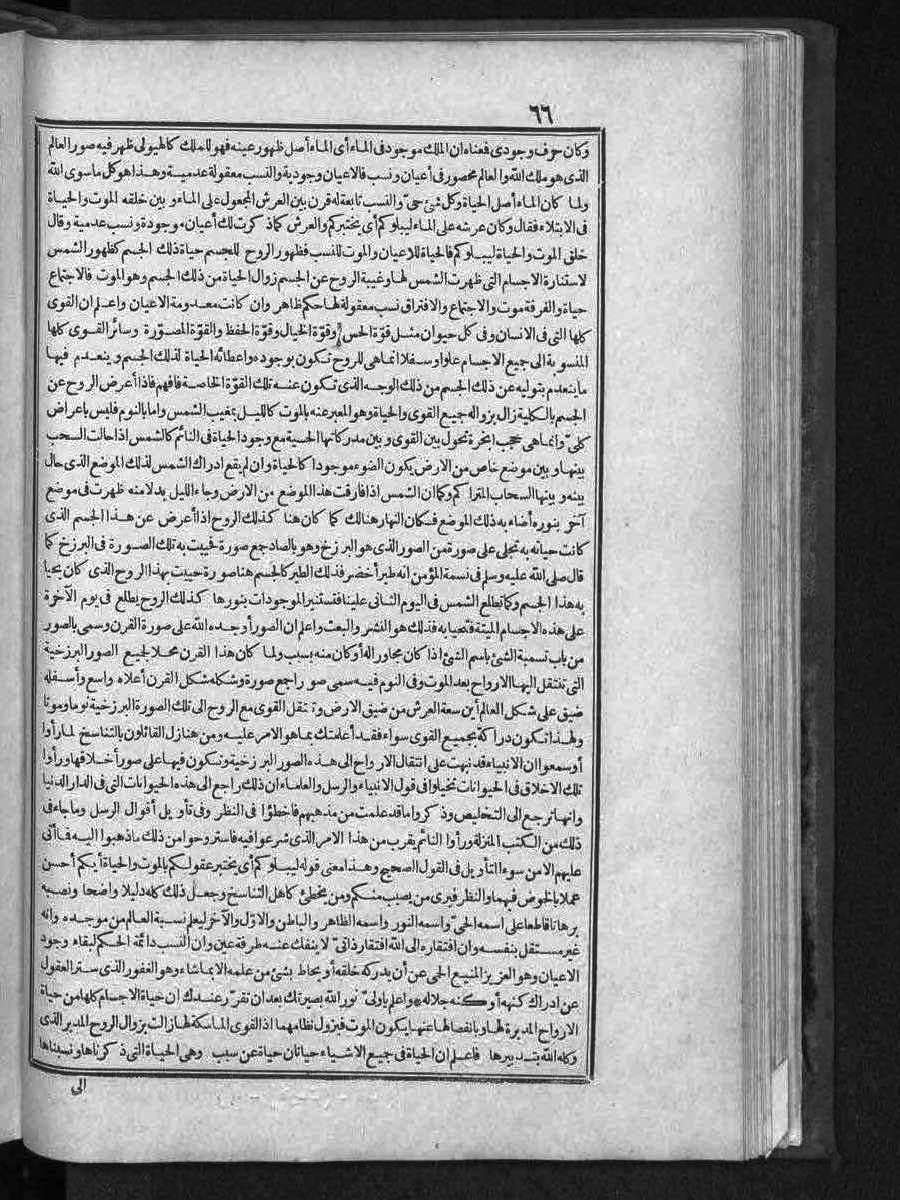 ٦٦
وكان حرف وجودى فمعناه ان الملك موجود فى الماء أى الماء أصل ظهور عينه فهو للملك كالهيولى ظهر فيه صور العالم
الذى هو ملك الله والعالم محصور فى أعيان ونسب فالاعيان وجودية والنسب معقولة عدمية وهذا هو كل ماسوى الله
ولما كان الماء أصل الحياة وكل شئ حىّ والنسب تابعة له قرن بين العرش المجعول على الماء و بين خلقه الموت والحياة
فى الابتلاء فقال وكان عرشه على الماء ليبلوكم أى يختبركم والعرش كماذ كرت لك أعيان موجودة ونسب عدمية وقال
خلق الموت والحياة ليبلوكم فالحياة للاعيان والموت للنسب فظهور الروح للجسم حياة ذلك الجسم كظهور الشمس
لاستنارة الاجسام التى ظهرت الشمس لها وغيبة الروح عن الجسم زوال الحياة من ذلك الجسم وهو الموت فالاجتماع
حياة والفرقة موت والاجتماع والافتراق نسب معقولة لها حكم ظاهر وان كانت معدومة الاعيان واعلم ان القوى
كلها التى فى الانسان وفى كل حيوان مثل قوّة الحس وقوّة الخيال وقوّة الحفظ والقوّة المصوّرة وسائر القوى كلها
المنسوبة الى جميع الاجسام علوا وسفلا انماهى للروح تكون بوجوده واعطائه الحياة لذلك الجسم وينعدم فيها
ما ينعدم بتوليه عن ذلك الجسم من ذلك الوجه الذى تكون عنه تلك القوّة الخاصة فافهم فاذا أعرض الروح عن
الجسم بالكلية زال بزواله جميع القوى والحياة وهو المعبر عنه بالموت كالليل بمغيب الشمس واما بالنوم فليس باعراض
كلىّ وانماهى حجب أبخرة تحول بين القوى و بين مدركاتها الحسية مع وجود الحياة فى النائم كالشمس اذا حالت السحب
بينها و بين موضع خاص من الارض يكون الضوء موجودا كالحياة وان لم يقع ادراك الشمس لذلك الموضع الذى حال
بينه و بينها السحاب المتراكم وكما ان الشمس اذا فارقت هذا الموضع من الارض وجاء الليل بدلا منه ظهرت فى موضع
آخر بنوره أضاء به ذلك الموضع فكان النهار هنالك كما كان هنا كذلك الروح اذا أعرض عن هذا الجسم الذى
كانت حياته به تجلى على صورة من الصور الذى هو البرزخ وهو بالصاد جمع صورة فحييت به تلك الصورة فى البرزخ كما
قال صلى الله عليه وسلم فى نسمة المؤمن انه طير أخضر فذلك الطير كالجسم هنا صورة حييت بهذا الروح الذى كان يحيا
به هذا الجسم وكما تطلع الشمس فى اليوم الثانى علينا فتستنير الموجودات بنورها كذلك الروح يطلع فى يوم الآخرة
على هذه الاجسام الميتة فتحيا به فذلك هو النشر والبعث واعلم ان الصور أوجده الله على صورة القرن وسمى بالصور
من باب تسمية الشئ باسم الشئ اذا كان مجاورا له أو كان منه بسبب ولما كان هذا القرن محلا لجميع الصور البرزخية
التى تنتقل اليها الارواح بعد الموت وفى النوم فيه سمى صورا جمع صورة وشكله شكل القرن أعلاه واسع وأسفله
ضيق على شكل العالم أين سعة العرش من ضيق الارض وتنتقل القوى مع الروح الى تلك الصورة البرزخية نوما وموتا
ولهذا تكون دراكة بجميع القوى سواء فقد أعلمتك بماهو الامر عليه ومن هنا زل القائلون بالتناسخ لما رأوا
أو سمعوا ان الانبياء قد نبهت على انتقال الارواح الى هذه الصور البرزخية وتكون فيها على صور أخلاقها ورأوا
تلك الاخلاق فى الحيوانات تخيلوا فى قول الانبياء والرسل والعلماء ان ذلك راجع الى هذه الحيوانات التى فى الدار الدنيا
وانها ترجع الى التخليص وذكروا ما قد علمت من مذهبهم فاخطؤا فى النظر وفى تأويل أقوال الرسل وماجاء فى
ذلك من الكتب المنزلة ورأوا النائم يقرب من هذا الامر الذى شرعوا فيه فاستروحوا من ذلك ماذهبوا اليه فما أتى
عليهم الا من سوء التأويل فى القول الصحيح وهذا معنى قوله ليبلوكم أى يختبر عقولكم بالموت والحياة أيكم أحسن
عملا بالخوض فيهما والنظر فيرى من يصيب منكم ومن يخطئ كاهل التناسخ وجعل ذلك كله دليلا واضحا ونصبه
برهانا قاطعا على اسمه الحىّ واسمه النور واسمه الظاهر والباطن والاوّل والآخر ليعلم نسبة العالم من موجده وانه
غير مستقل بنفسه وان افتقاره الى الله افتقار ذاتىّ لا ينفك عنه طرفة عين وان النسب دائمة الحكم لبقاء وجود
الاعيان وهو العزيز المنيع الحمى عن أن يدركه خلقه أو يحاط بشئ من علمه الا بماشاء وهو الغفور الذى ستر العقول
عن ادراك كنهه أو كنه جلاله واعلم ياولىّ نور الله بصيرتك بعد ان تقرّر عندك ان حياة الاجسام كلها من حياة
الارواح المدبرة لها و بانفصالها عنها يكون الموت فيزول نظامها اذ القوى الماسكة لها زالت بزوال الروح المدبر الذى
وكله الله بتدبيرها فاعلم ان الحياة فى جميع الاشياء حياتان حياة عن سبب وهى الحياة التى ذكرناها ونسبناها
الى